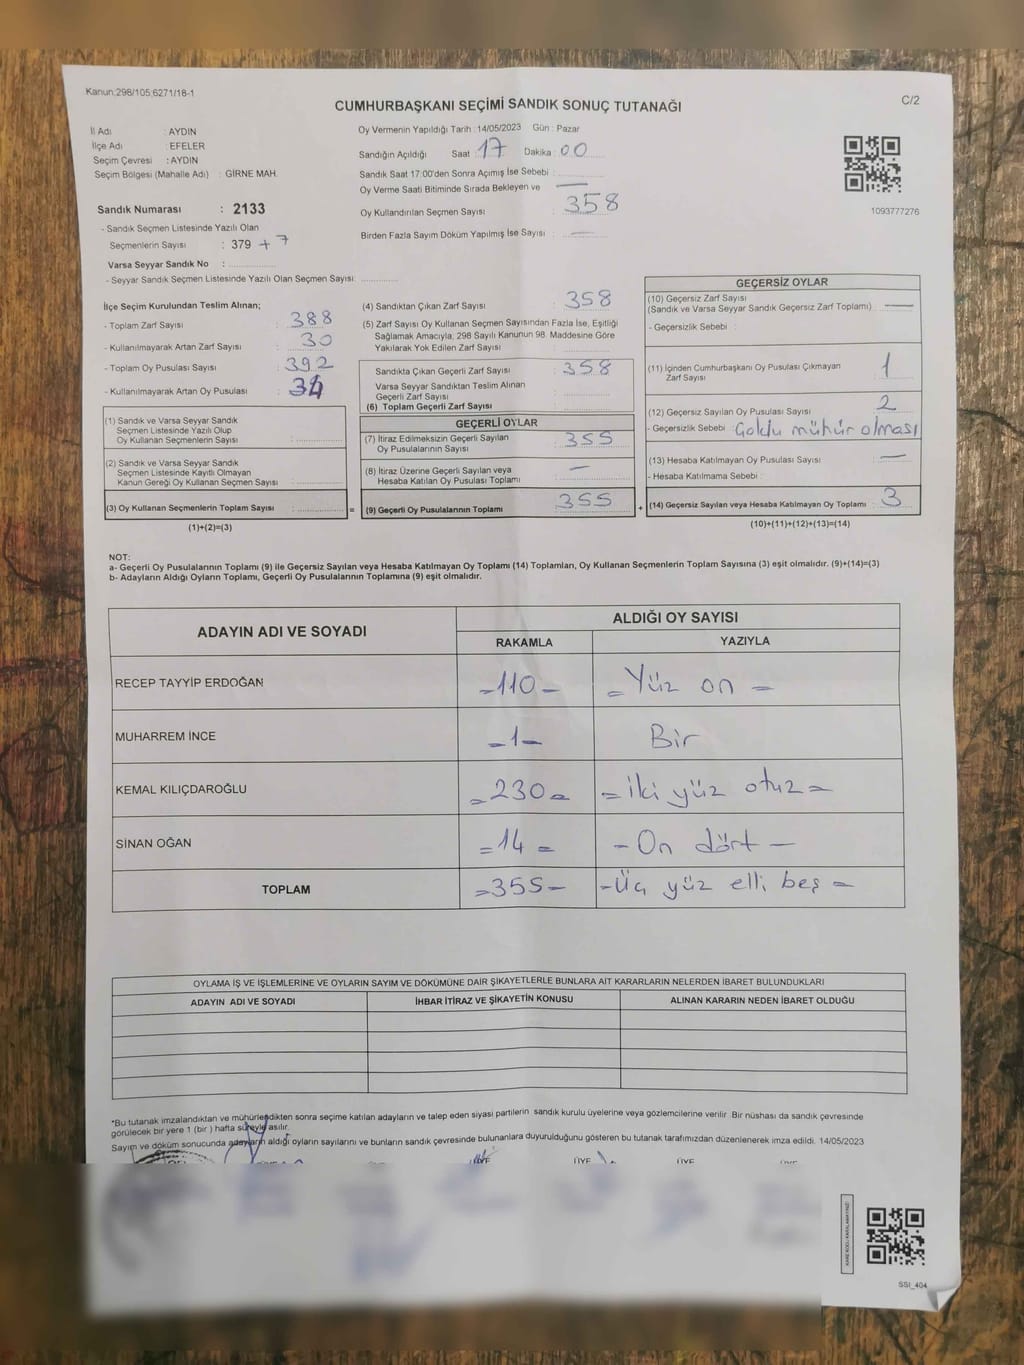 Kanun:298/105,6271/18-1
CUMHURBAŞKANI SEÇİMİ SANDIK SONUÇ TUTANAĞI
C/2
İl Adı : AYDIN
İlçe Adı : EFELER
Seçim Çevresi : AYDIN
Seçim Bölgesi (Mahalle Adı) : GİRNE MAH.
Sandık Numarası : 2133
- Sandık Seçmen Listesinde Yazılı Olan
Seçmenlerin Sayısı : 379 + 7
Varsa Seyyar Sandık No :
- Seyyar Sandık Seçmen Listesinde Yazılı Olan Seçmen Sayısı:
Oy Vermenin Yapıldığı Tarih : 14/05/2023 Gün : Pazar
Sandığın Açıldığı Saat : 17 Dakika : 00
Sandık Saat 17:00'den Sonra Açımış İse Sebebi :
Oy Verme Saati Bitiminde Sırada Bekleyen ve —
Oy Kullandırılan Seçmen Sayısı : 358
Birden Fazla Sayım Döküm Yapılmış İse Sayısı : —
1093777276
İlçe Seçim Kurulundan Teslim Alınan;
- Toplam Zarf Sayısı : 388
- Kullanılmayarak Artan Zarf Sayısı : 30
- Toplam Oy Pusulası Sayısı : 392
- Kullanılmayarak Artan Oy Pusulası : 34
(1) Sandık ve Varsa Seyyar Sandık
Seçmen Listesinde Yazılı Olup
Oy Kullanan Seçmenlerin Sayısı :
(2) Sandık ve Varsa Seyyar Sandık
Seçmen Listesinde Kayıtlı Olmayan
Kanun Gereği Oy Kullanan Seçmen Sayısı :
(3) Oy Kullanan Seçmenlerin Toplam Sayısı : =
(1)+(2)=(3)
(4) Sandıktan Çıkan Zarf Sayısı : 358
(5) Zarf Sayısı Oy Kullanan Seçmen Sayısından Fazla İse, Eşitliği
Sağlamak Amacıyla, 298 Sayılı Kanunun 98. Maddesine Göre
Yakılarak Yok Edilen Zarf Sayısı :
Sandıkta Çıkan Geçerli Zarf Sayısı : 358
Varsa Seyyar Sandıktan Teslim Alınan
Geçerli Zarf Sayısı :
(6) Toplam Geçerli Zarf Sayısı :
GEÇERLİ OYLAR
(7) İtiraz Edilmeksizin Geçerli Sayılan
Oy Pusulalarının Sayısı : 355
(8) İtiraz Üzerine Geçerli Sayılan veya
Hesaba Katılan Oy Pusulası Toplamı : —
(9) Geçerli Oy Pusulalarının Toplamı : 355 +
GEÇERSİZ OYLAR
(10) Geçersiz Zarf Sayısı
(Sandık ve Varsa Seyyar Sandık Geçersiz Zarf Toplamı) : —
- Geçersizlik Sebebi :
(11) İçinden Cumhurbaşkanı Oy Pusulası Çıkmayan
Zarf Sayısı : 1
(12) Geçersiz Sayılan Oy Pusulası Sayısı : 2
- Geçersizlik Sebebi : Çoklu mühür olması
(13) Hesaba Katılmayan Oy Pusulası Sayısı : —
- Hesaba Katılmama Sebebi :
(14) Geçersiz Sayılan veya Hesaba Katılmayan Oy Toplamı : 3
(10)+(11)+(12)+(13)=(14)
NOT:
a- Geçerli Oy Pusulalarının Toplamı (9) ile Geçersiz Sayılan veya Hesaba Katılmayan Oy Toplamı (14) Toplamları, Oy Kullanan Seçmenlerin Toplam Sayısına (3) eşit olmalıdır. (9)+(14)=(3)
b- Adayların Aldığı Oyların Toplamı, Geçerli Oy Pusulalarının Toplamına (9) eşit olmalıdır.
ADAYIN ADI VE SOYADI ALDIĞI OY SAYISI
RAKAMLA YAZIYLA
RECEP TAYYİP ERDOĞAN -110- = Yüz on =
MUHARREM İNCE =1= Bir
KEMAL KILIÇDAROĞLU =230= = iki yüz otuz =
SİNAN OĞAN =14= - On dört -
TOPLAM =355- - Üç yüz elli beş =
OYLAMA İŞ VE İŞLEMLERİNE VE OYLARIN SAYIM VE DÖKÜMÜNE DAİR ŞİKAYETLERLE BUNLARA AİT KARARLARIN NELERDEN İBARET BULUNDUKLARI
ADAYIN ADI VE SOYADI İHBAR İTİRAZ VE ŞİKAYETİN KONUSU ALINAN KARARIN NEDEN İBARET OLDUĞU
*Bu tutanak imzalandıktan ve mühürlendikten sonra seçime katılan adayların ve talep eden siyasi partilerin sandık kurulu üyelerine veya gözlemcilerine verilir. Bir nüshası da sandık çevresinde
görülecek bir yere 1 (bir) hafta süreyle asılır.
Sayım ve döküm sonucunda adayların aldığı oyların sayılarını ve bunların sandık çevresinde bulunanlara duyurulduğunu gösteren bu tutanak tarafımızdan düzenlenerek imza edildi. 14/05/2023
ÜYE ÜYE ÜYE
SSI_404